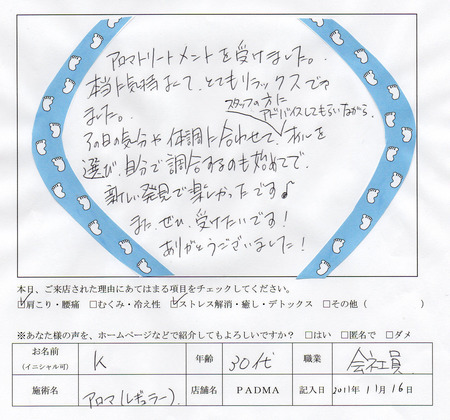 アロマトリートメントを受けました。
本当に気持よくて、とてもリラックスでき
ました。
スタッフの方に
アドバイスしてもらいながら、
その日の気分や体調に合わせて、オイルを
選び、自分で調合するのも始めてで、
新しい発見で楽しかったです♪
また、ぜひ、受けたいです！
ありがとうございました！
本日、ご来店された理由にあてはまる項目をチェックしてください。
☑肩こり・腰痛 □むくみ・冷え性 ☑ストレス解消・癒し・デトックス □その他（ ）
※あなた様の声を、ホームページなどで紹介してもよろしいですか？ □はい □匿名で □ダメ
お名前 (イニシャル可) K 年齢 30代 職業 会社員
施術名 アロマ(レギュラー) 店舗名 PADMA 記入日 2011年 11月 16日